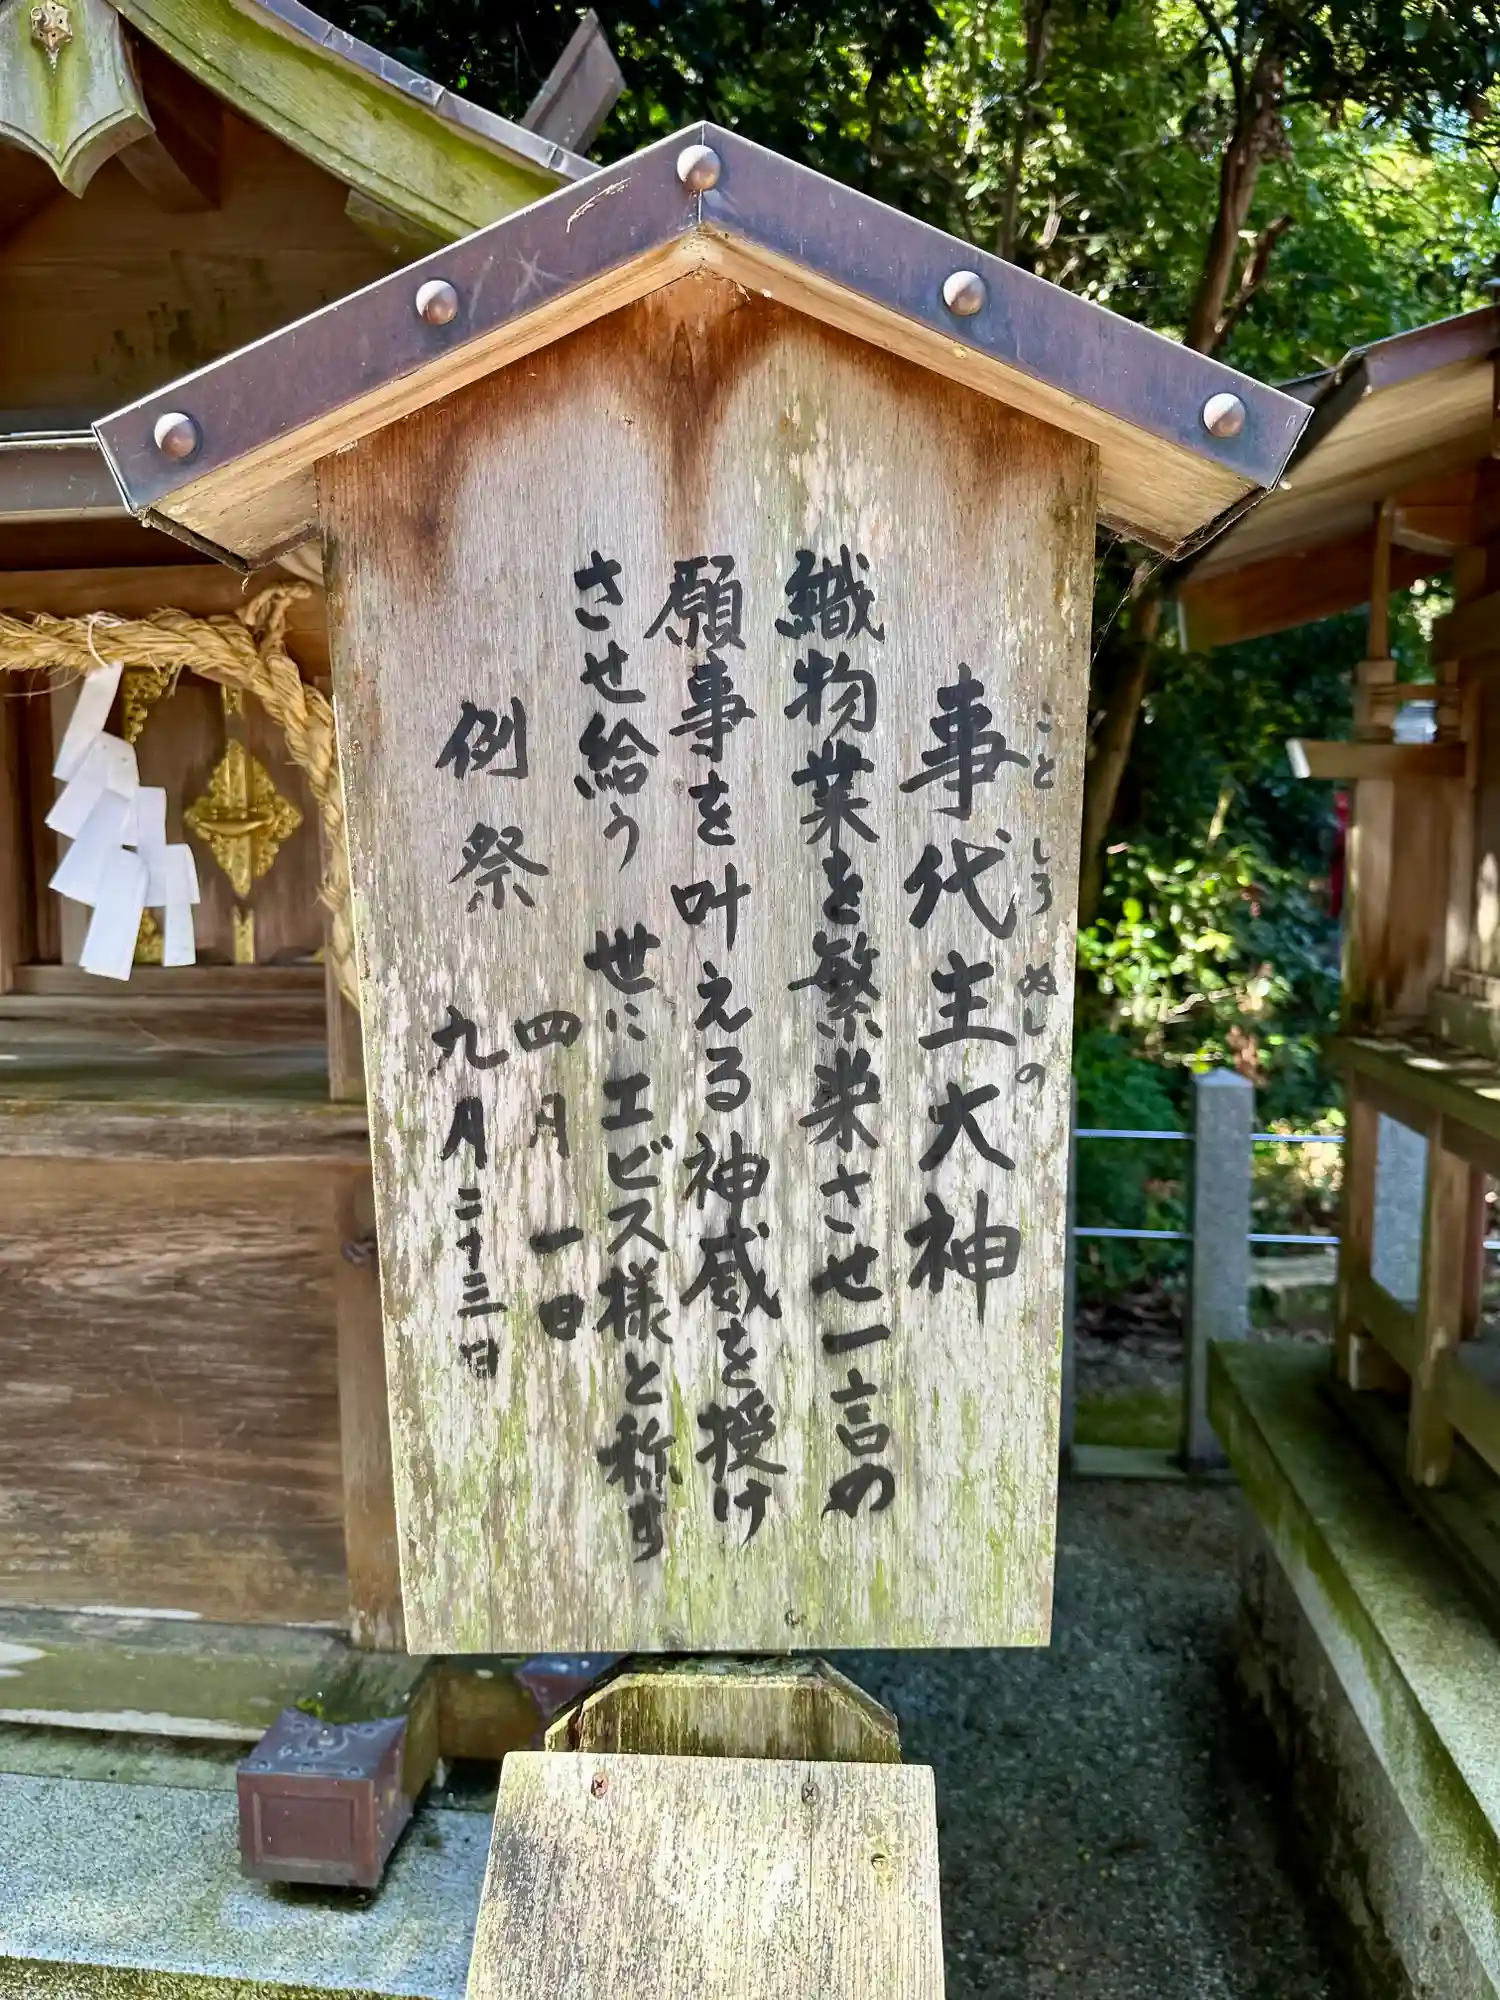 事代主大神
ことしろぬしの
織物業を繁栄させ一言の
願事を叶える神威を授け
させ給う 世にエビス様と称す
例祭 四月 一日
九月二十三日